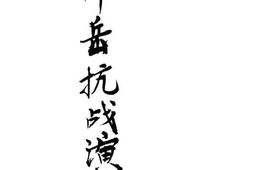 岳抗战演